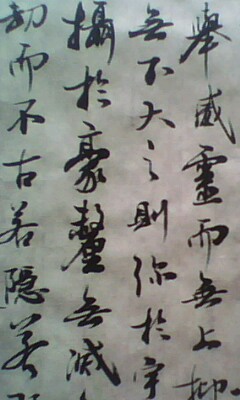 舉威靈而無上抑
無下大之則弥於宇
攝於豪釐無滅
劫而不古若隱若